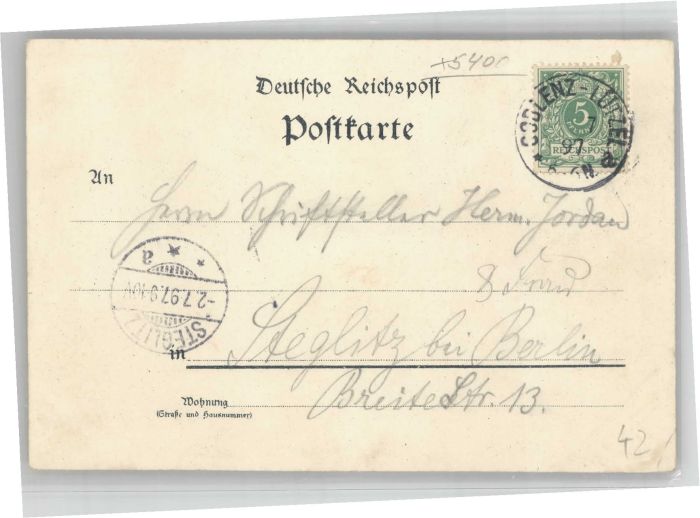 +5400
Deutsche Reichspost
Postkarte
COBLENZ-LÜTZEL
97
5
PFENNIG
REICHSPOST
An
Herrn Schriftsteller Herm. Jordan
& Frau
STEGLITZ
-2.7.97.9-10V.
* * a
in Steglitz bei Berlin
Wohnung
(Straße und Hausnummer)
Breite Str. 13.
42